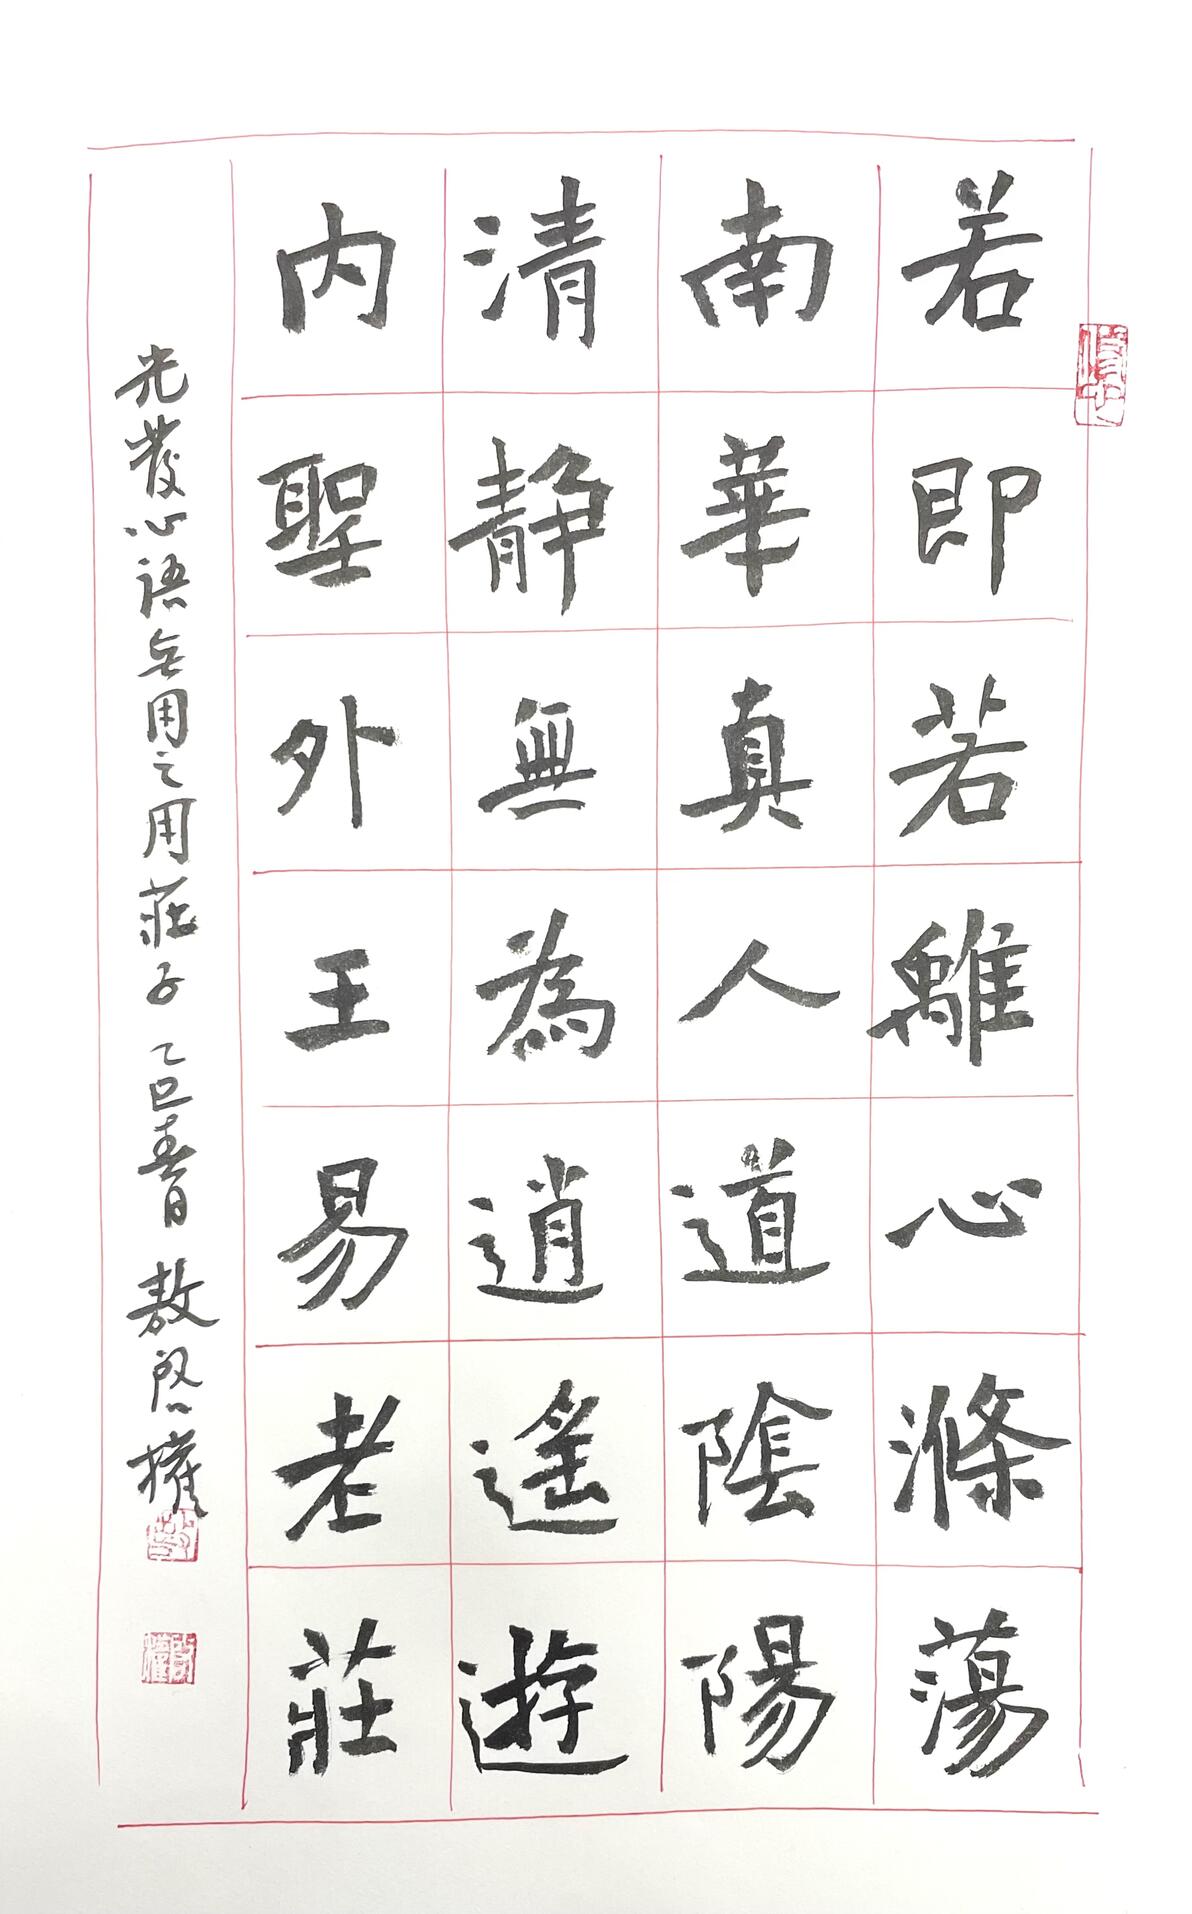 若即若離心滌蕩
南華真人道陰陽
清静無為逍遙遊
内聖外王易老莊
光發心語無用之用莊子 乙巳春月 敖啓權